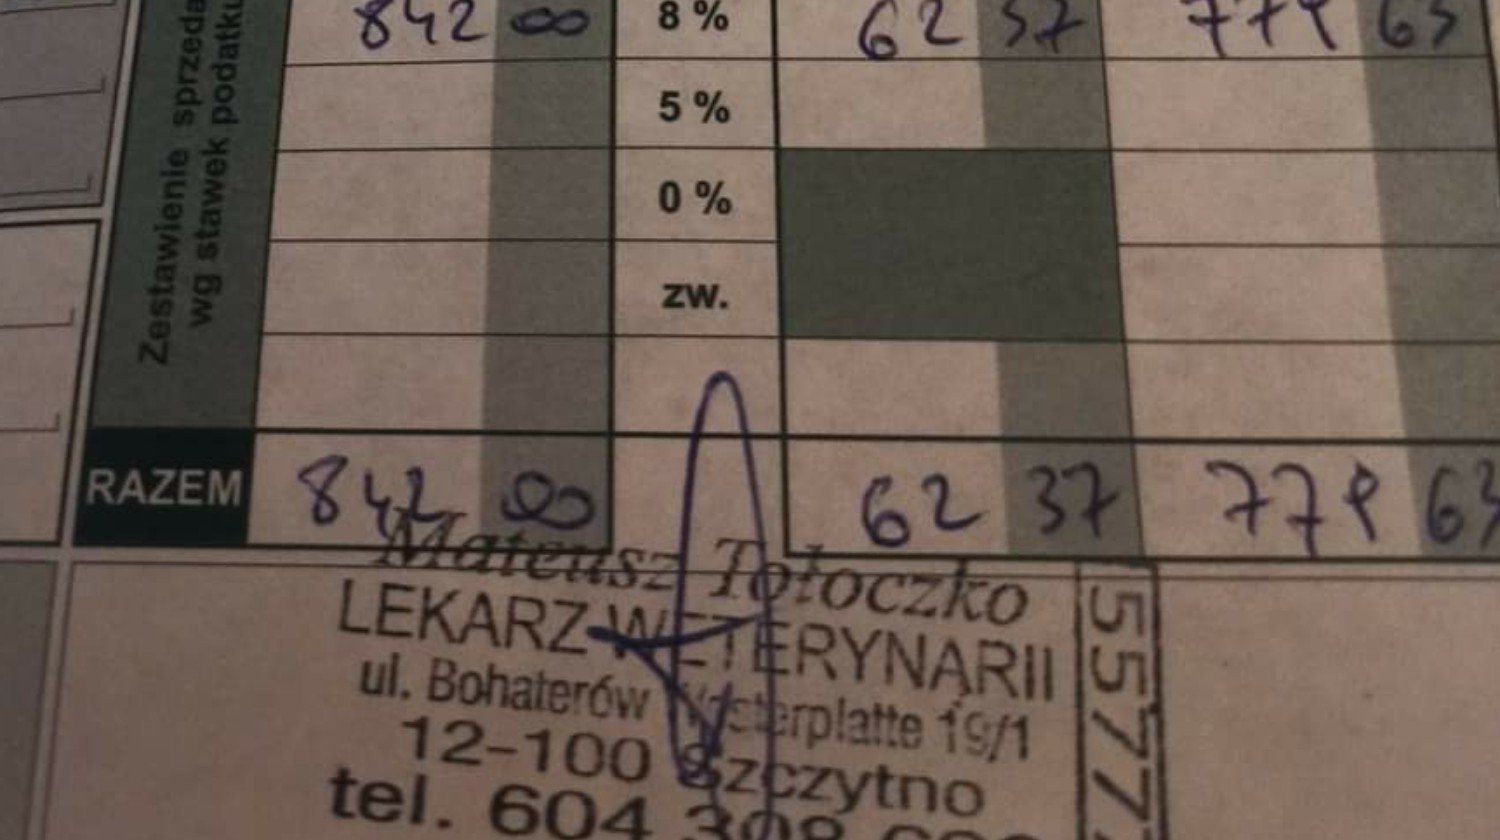 Zestawienie sprzeda
wg stawek podatku
842 00 8 % 62 37 779 63
5 %
0 %
zw.
RAZEM 842 00 62 37 779 63
Mateusz Tołoczko
LEKARZ WETERYNARII
ul. Bohaterów Westerplatte 19/1
12-100 Szczytno
tel. 604 308
5577